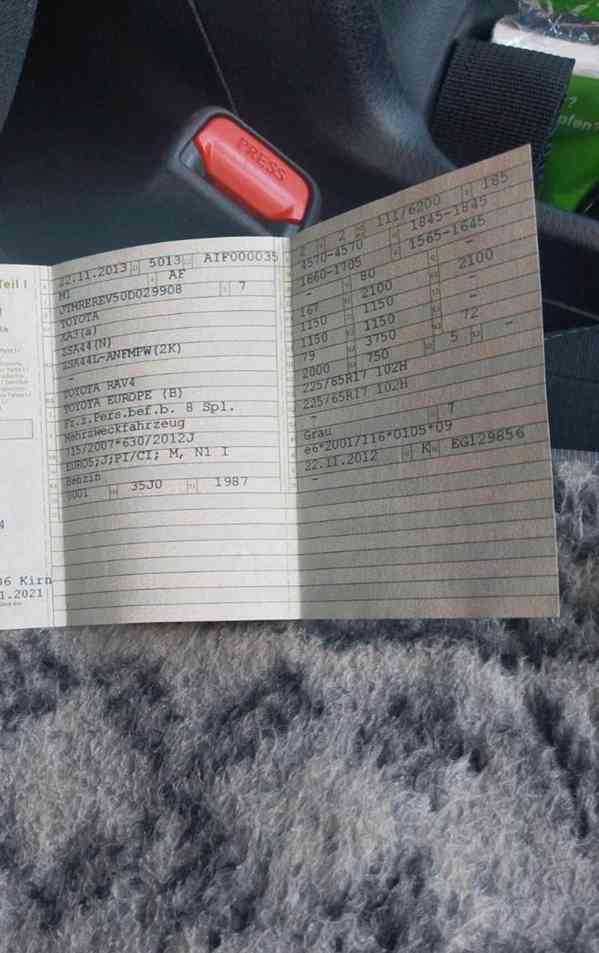 PRESS
pfen?
Teil I
22.11.2013 5013 AIF000035
M1 AF
JTMREREV50D029908 7
TOYOTA
XA3(a)
ZSA44(N)
ZSA44L-ANFMPW(2K)
-
TOYOTA RAV4
TOYOTA EUROPE (B)
Fz.z.Pers.bef.b. 8 Spl.
Mehrzweckfahrzeug
715/2007*630/2012J
EURO5;J;PI/CI; M, N1 I
Benzin
0001 35J0 1987
06 Kirn
1.2021
2 2 111/6200 185
4570-4570 1845-1845
1660-1705 1565-1645
- 80 -
167 2100 2100
1150 1150 -
1150 1150 -
79 3750 72
2000 750 5 -
225/65R17 102H
225/65R17 102H
-
Grau 7
e6*2001/116*0105*09
22.11.2012 K EG129856
-